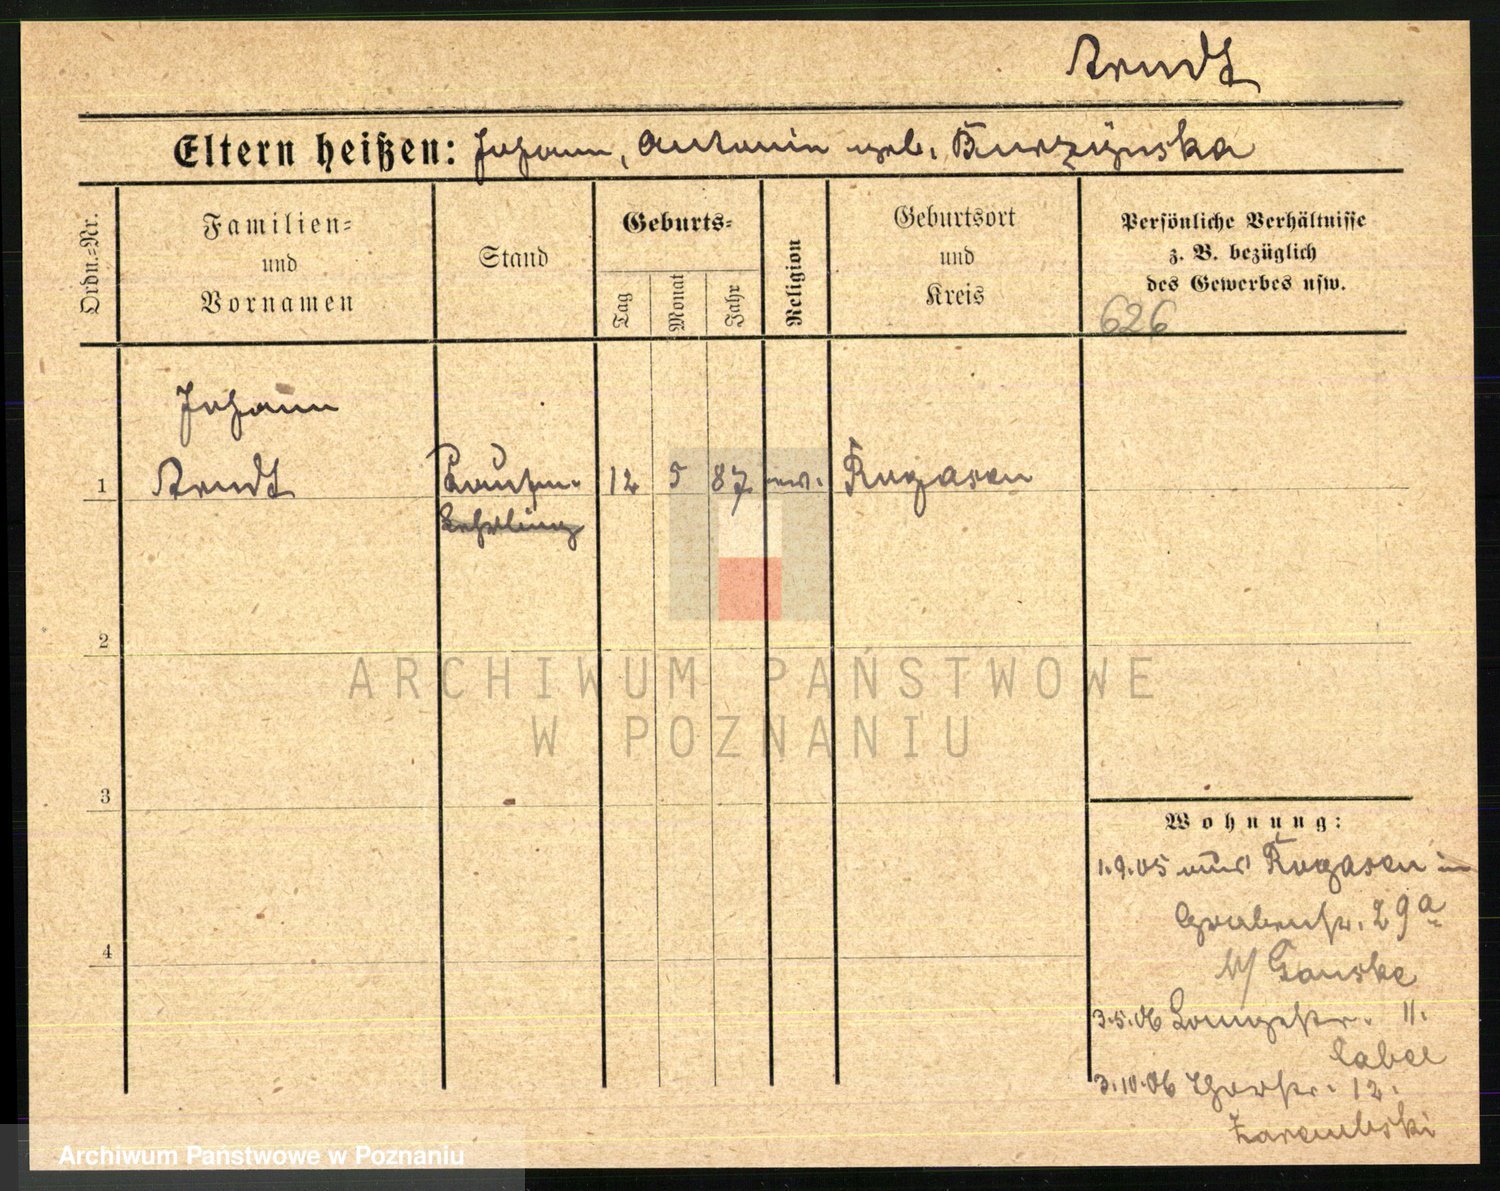 Arndt
Eltern heißen: Johann, Antonie geb. Burzynska
Ordn.=Nr.
Familien=
und
Vornamen
Stand
Geburts=
Tag
Monat
Jahr
Religion
Geburtsort
und
Kreis
Persönliche Verhältnisse
z. B. bezüglich
des Gewerbes usw.
626
Johann
1 Arndt 12 5 87 ev. Rogasen
Lehrling
2
3
4
Wohnung:
1.9.05 aus Rogasen in
Grabenstr. 29a
b/ Ganske
3.5.06 Langestr. 11.
Label
3.10.06 Thorstr. 12.
Zarembski
ARCHIWUM PAŃSTWOWE
W POZNANIU
Archiwum Państwowe w Poznaniu